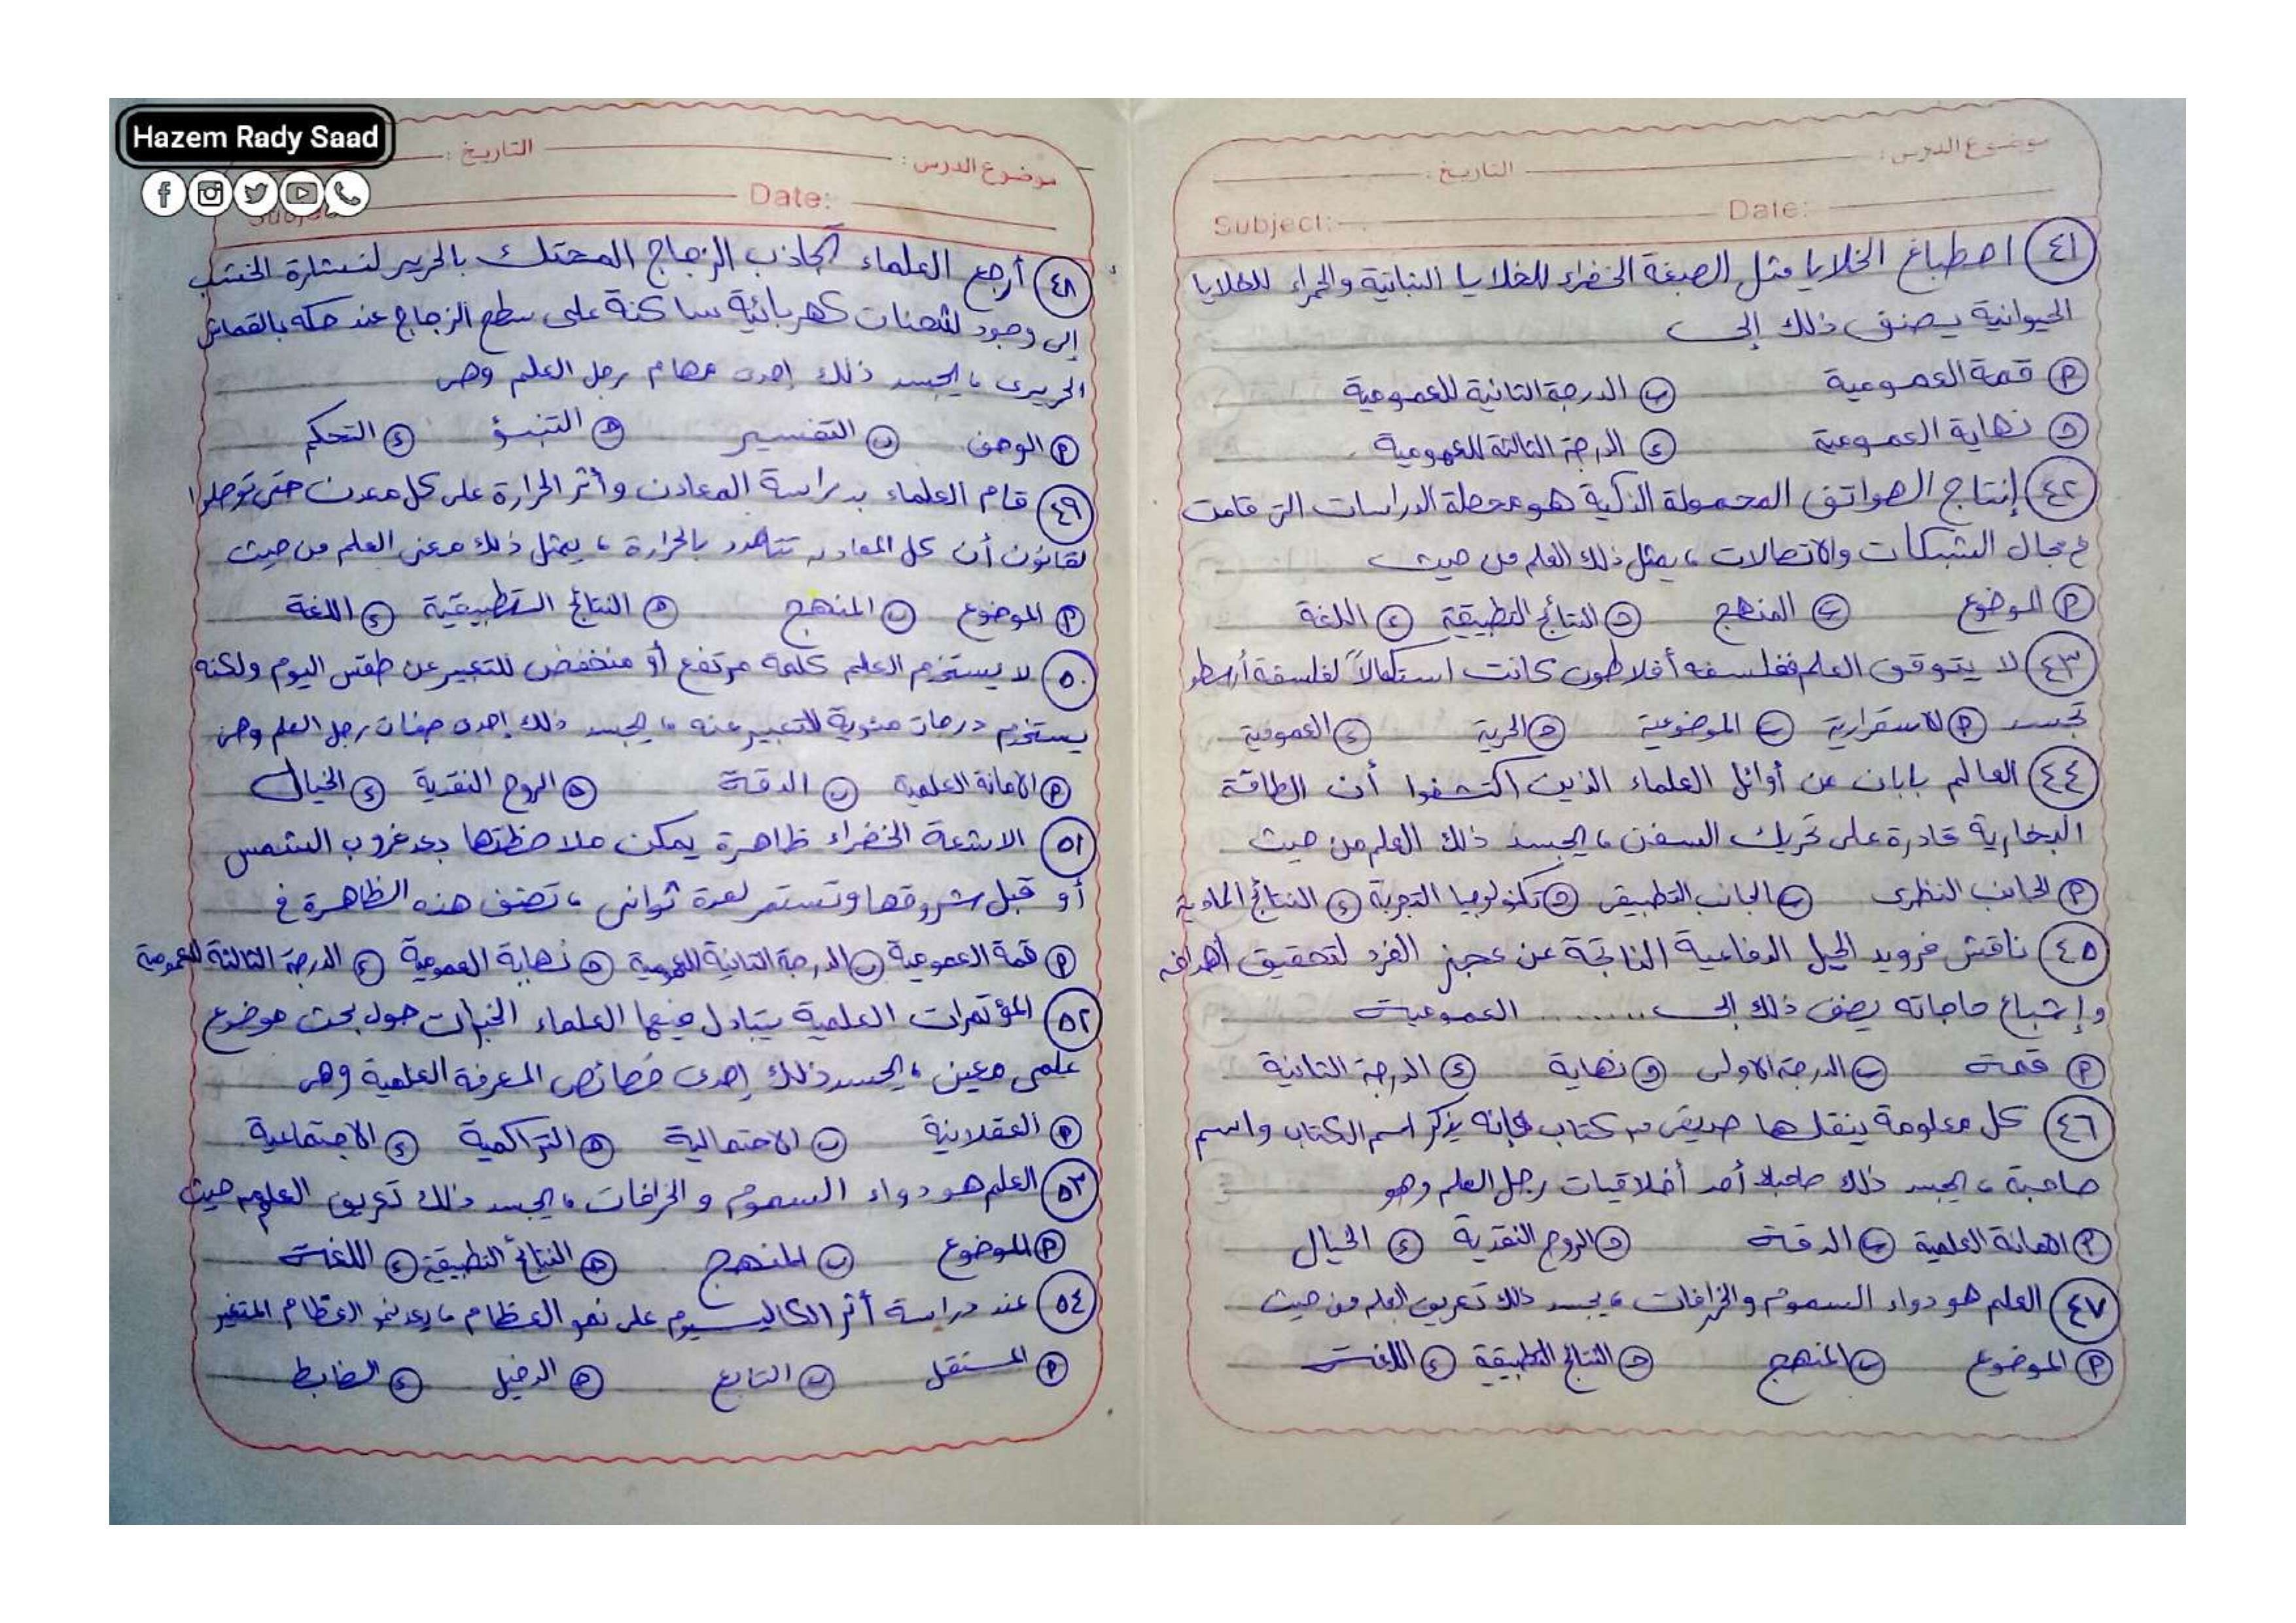 Hazem Rady Saad
موضوع الدرس: التاريخ:
Subject: Date:
٤١ اصطباغ الخلايا مثل الصبغة الخضراء للخلايا النباتية والحمراء للخلايا
الحيوانية يصنف ذلك إلى
أ قمة العمومية ب الدرجة الثانية للعمومية
ج نهاية العمومية د الدرجة الثالثة للعمومية
٤٢ إنتاج الهواتف المحمولة الذكية هو محصلة الدراسات التى قامت
فى مجال الشبكات والاتصالات ، يمثل ذلك العلم من حيث
أ الموضوع ب المنهج ج النتائج التطبيقية د اللغة
٤٣ لا يتوقف العلم ففلسفه أفلاطون كانت استكمالاً لفلسفة أرسطو
تجسد أ الاستقرارية ب الموضوعية ج الحرية د العمومية
٤٤ العالم بابان من أوائل العلماء الذين اكتشفوا أن الطاقة
البخارية قادرة على تحريك السفن ، يجسد ذلك العلم من حيث
أ الجانب النظرى ب الجانب التطبيقى ج تكنولوجيا التجربة د النتائج المادية
٤٥ ناقش فرويد الحيل الدفاعية الناتجة عن عجز الفرد لتحقيق أهدافه
وإشباع حاجاته يصنف ذلك إلى ........ العمومية
أ قمة ب الدرجة الاولى ج نهاية د الدرجة الثانية
٤٦ كل معلومة ينقلها صديقى من كتاب فإنه يذكر اسم الكتاب واسم
صاحبة ، يجسد ذلك أحد أخلاقيات رجل العلم وهو
أ الامانة العلمية ب الدقة ج الروح النقدية د الخيال
٤٧ العلم هو دواء السموم والخرافات ، يجسد ذلك تعريف العلم من حيث
أ الموضوع ب المنهج ج النتائج التطبيقية د اللغة
موضوع الدرس: التاريخ:
Date:
٤٨ أرجع العلماء تجاذب الزجاج المحتك بالحرير لنشارة الخشب
إلى وجود شحنات كهربائية ساكنة على سطح الزجاج عند حكه بالقماش
الحريرى ، يجسد ذلك إحدى مهام رجل العلم وهى
أ الوصف ب التفسير ج التنبؤ د التحكم
٤٩ قام العلماء بدراسة المعادن وأثر الحرارة على كل معدن حتى توصلوا
لقانون أن كل المعادن تتمدد بالحرارة ، يمثل ذلك معنى العلم من حيث
أ الموضوع ب المنهج ج النتائج التطبيقية د اللغة
٥٠ لا يستخدم العلم كلمة مرتفع أو منخفض للتعبير عن طقس اليوم ولكنه
يستخدم درجات مئوية للتعبير عنه ، يجسد ذلك إحدى صفات رجل العلم وهى
أ الامانة العلمية ب الدقة ج الروح النقدية د الخيال
٥١ الاشعة الخضراء ظاهرة يمكن ملاحظتها بعد غروب الشمس
أو قبل شروقها وتستمر لعدة ثوانى ، تصنف هذه الظاهرة فى
أ قمة العمومية ب الدرجة الثانية للعمومية ج نهاية العمومية د الدرجة الثالثة للعمومية
٥٢ المؤتمرات العلمية يتبادل فيها العلماء الخبرات حول بحث موضوع
علمى معين ، يجسد ذلك إحدى خصائص المعرفة العلمية وهى
أ العقلانية ب الاحتمالية ج التراكمية د الاجتماعية
٥٣ العلم هو دواء السموم والخرافات ، يجسد ذلك تعريف العلم من حيث
أ الموضوع ب المنهج ج النتائج التطبيقية د اللغة
٥٤ عند دراسة أثر الكاليسيوم على نمو العظام ، يعد نمو العظام المتغير
أ المستقل ب التابع ج الدخيل د الضابط